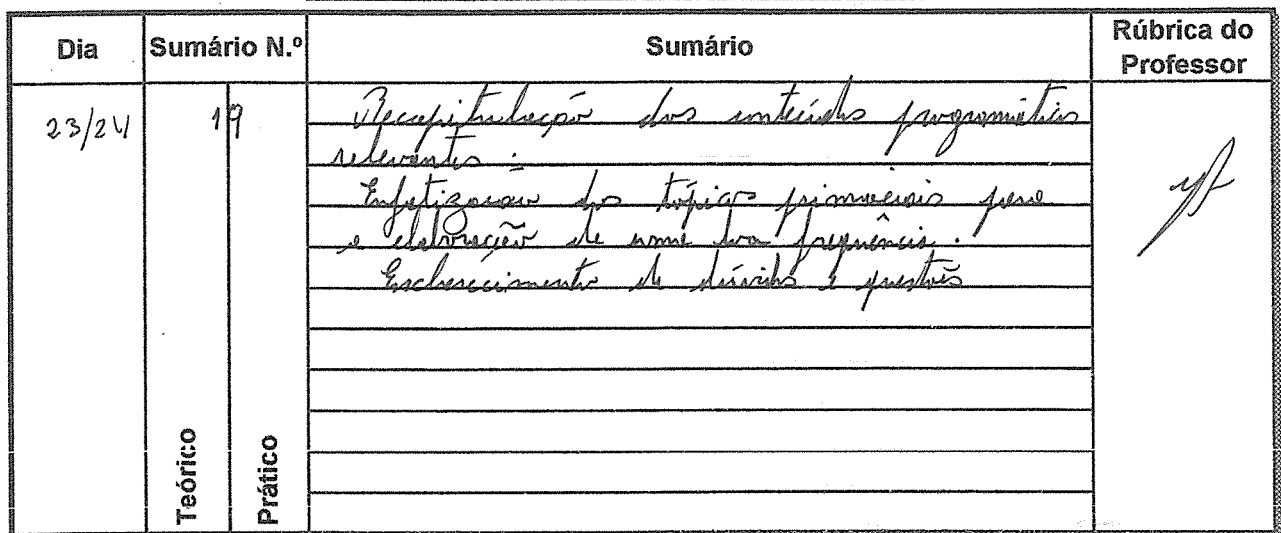 Dia Sumário N.º Sumário Rúbrica do Professor
23/24 19 Recapitulação dos conteúdos programáticos
relevantes.
Enfatização dos tópicos primaciais para
a elaboração de uma boa frequência.
Esclarecimento de dúvidas e questões
Teórico Prático